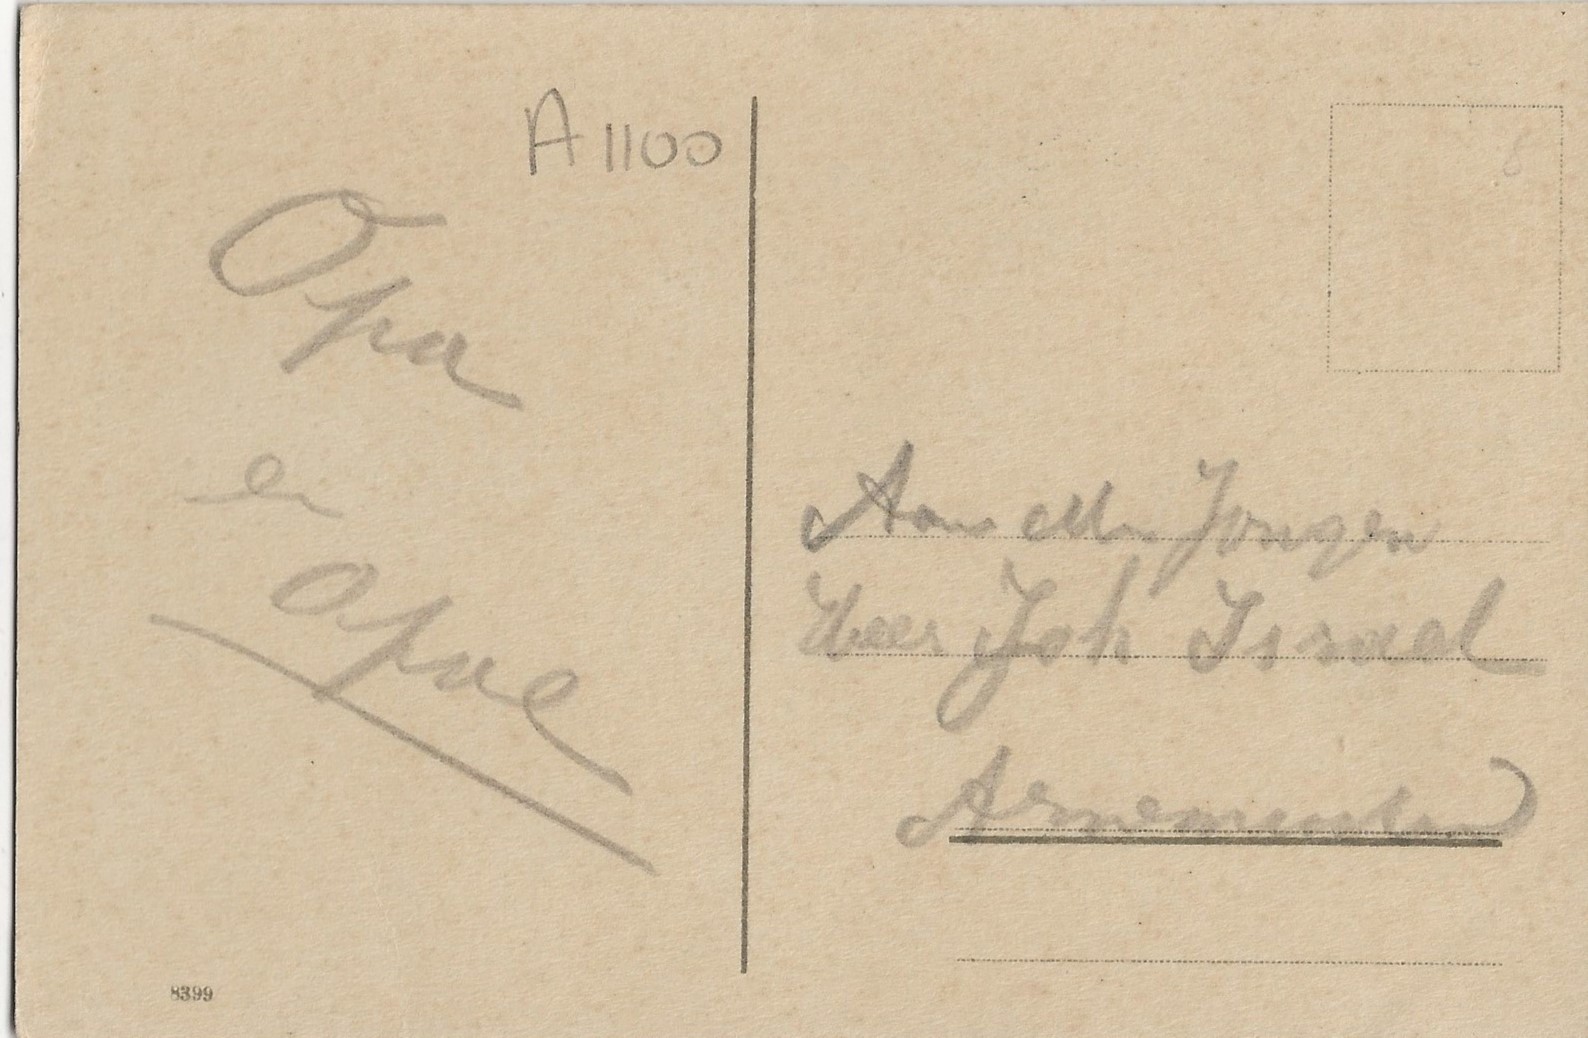 A 1100
Opa
en
opoe
Aan den Jongen
Heer Joh Israel
Arnemuiden
8399